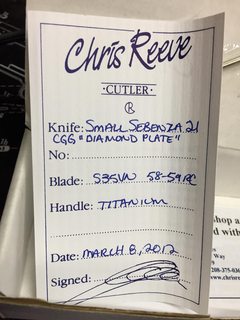 Chris Reeve
·CUTLER·
R
Knife: SMALL SEBENZA 21
CGG "DIAMOND PLATE"
No:
Blade: S35VN 58-59 RC
Handle: TITANIUM
Date: MARCH 8, 2012
Signed:
shop a
d with
Way
208-375-036
www.chrisre